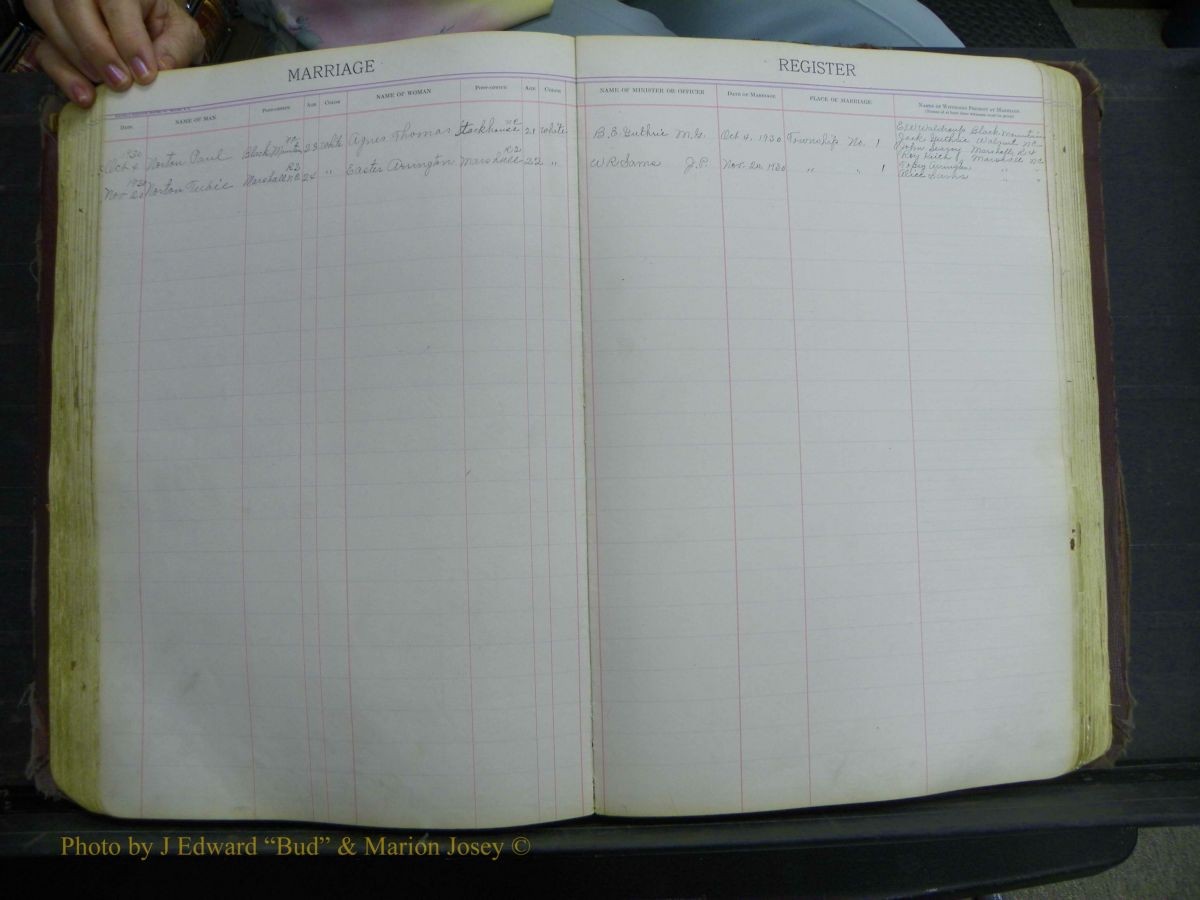 MARRIAGE REGISTER
DATE NAME OF MAN POST-OFFICE AGE COLOR NAME OF WOMAN POST-OFFICE AGE COLOR NAME OF MINISTER OR OFFICER DATE OF MARRIAGE PLACE OF MARRIAGE NAMES OF WITNESSES PRESENT AT MARRIAGE
1930 Oct 4 Norton Paul Black Mountain NC 23 White Agnes Thomas Stackhouse NC 21 White B.B. Guthrie M.G. Oct 4, 1930 Township No. 1 Black Mountain
Jack Guthrie Walnut NC
John Marshall R4
1930 Nov 20 Norton Marshall NC R2 24 " Easter Arrington Marshall R2 22 " W R Sams J.P. Nov. 20 1930 " " 1 Roy Marshall NC
Arrington " "
Alice Sams " "
Photo by J Edward “Bud” & Marion Josey ©